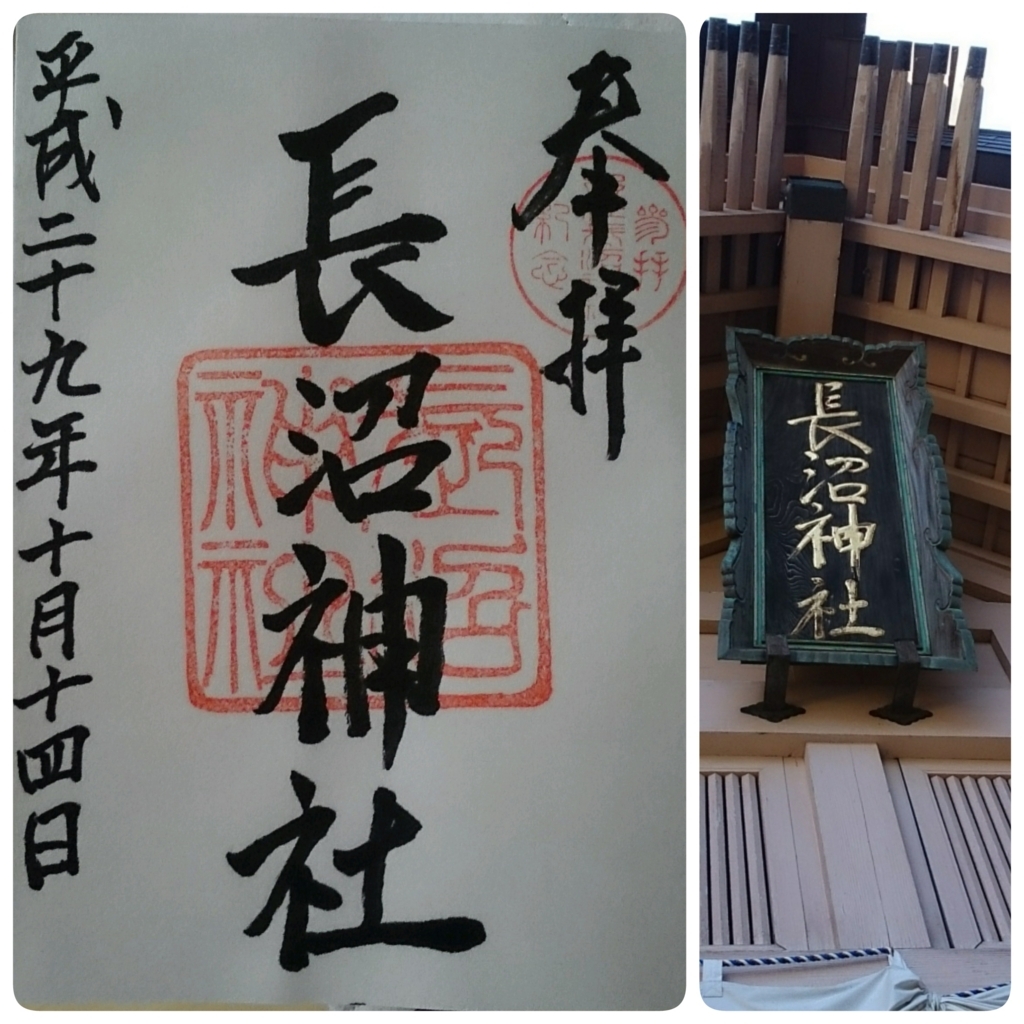 奉拝
長沼神社
平成二十九年十月十四日
長沼神社